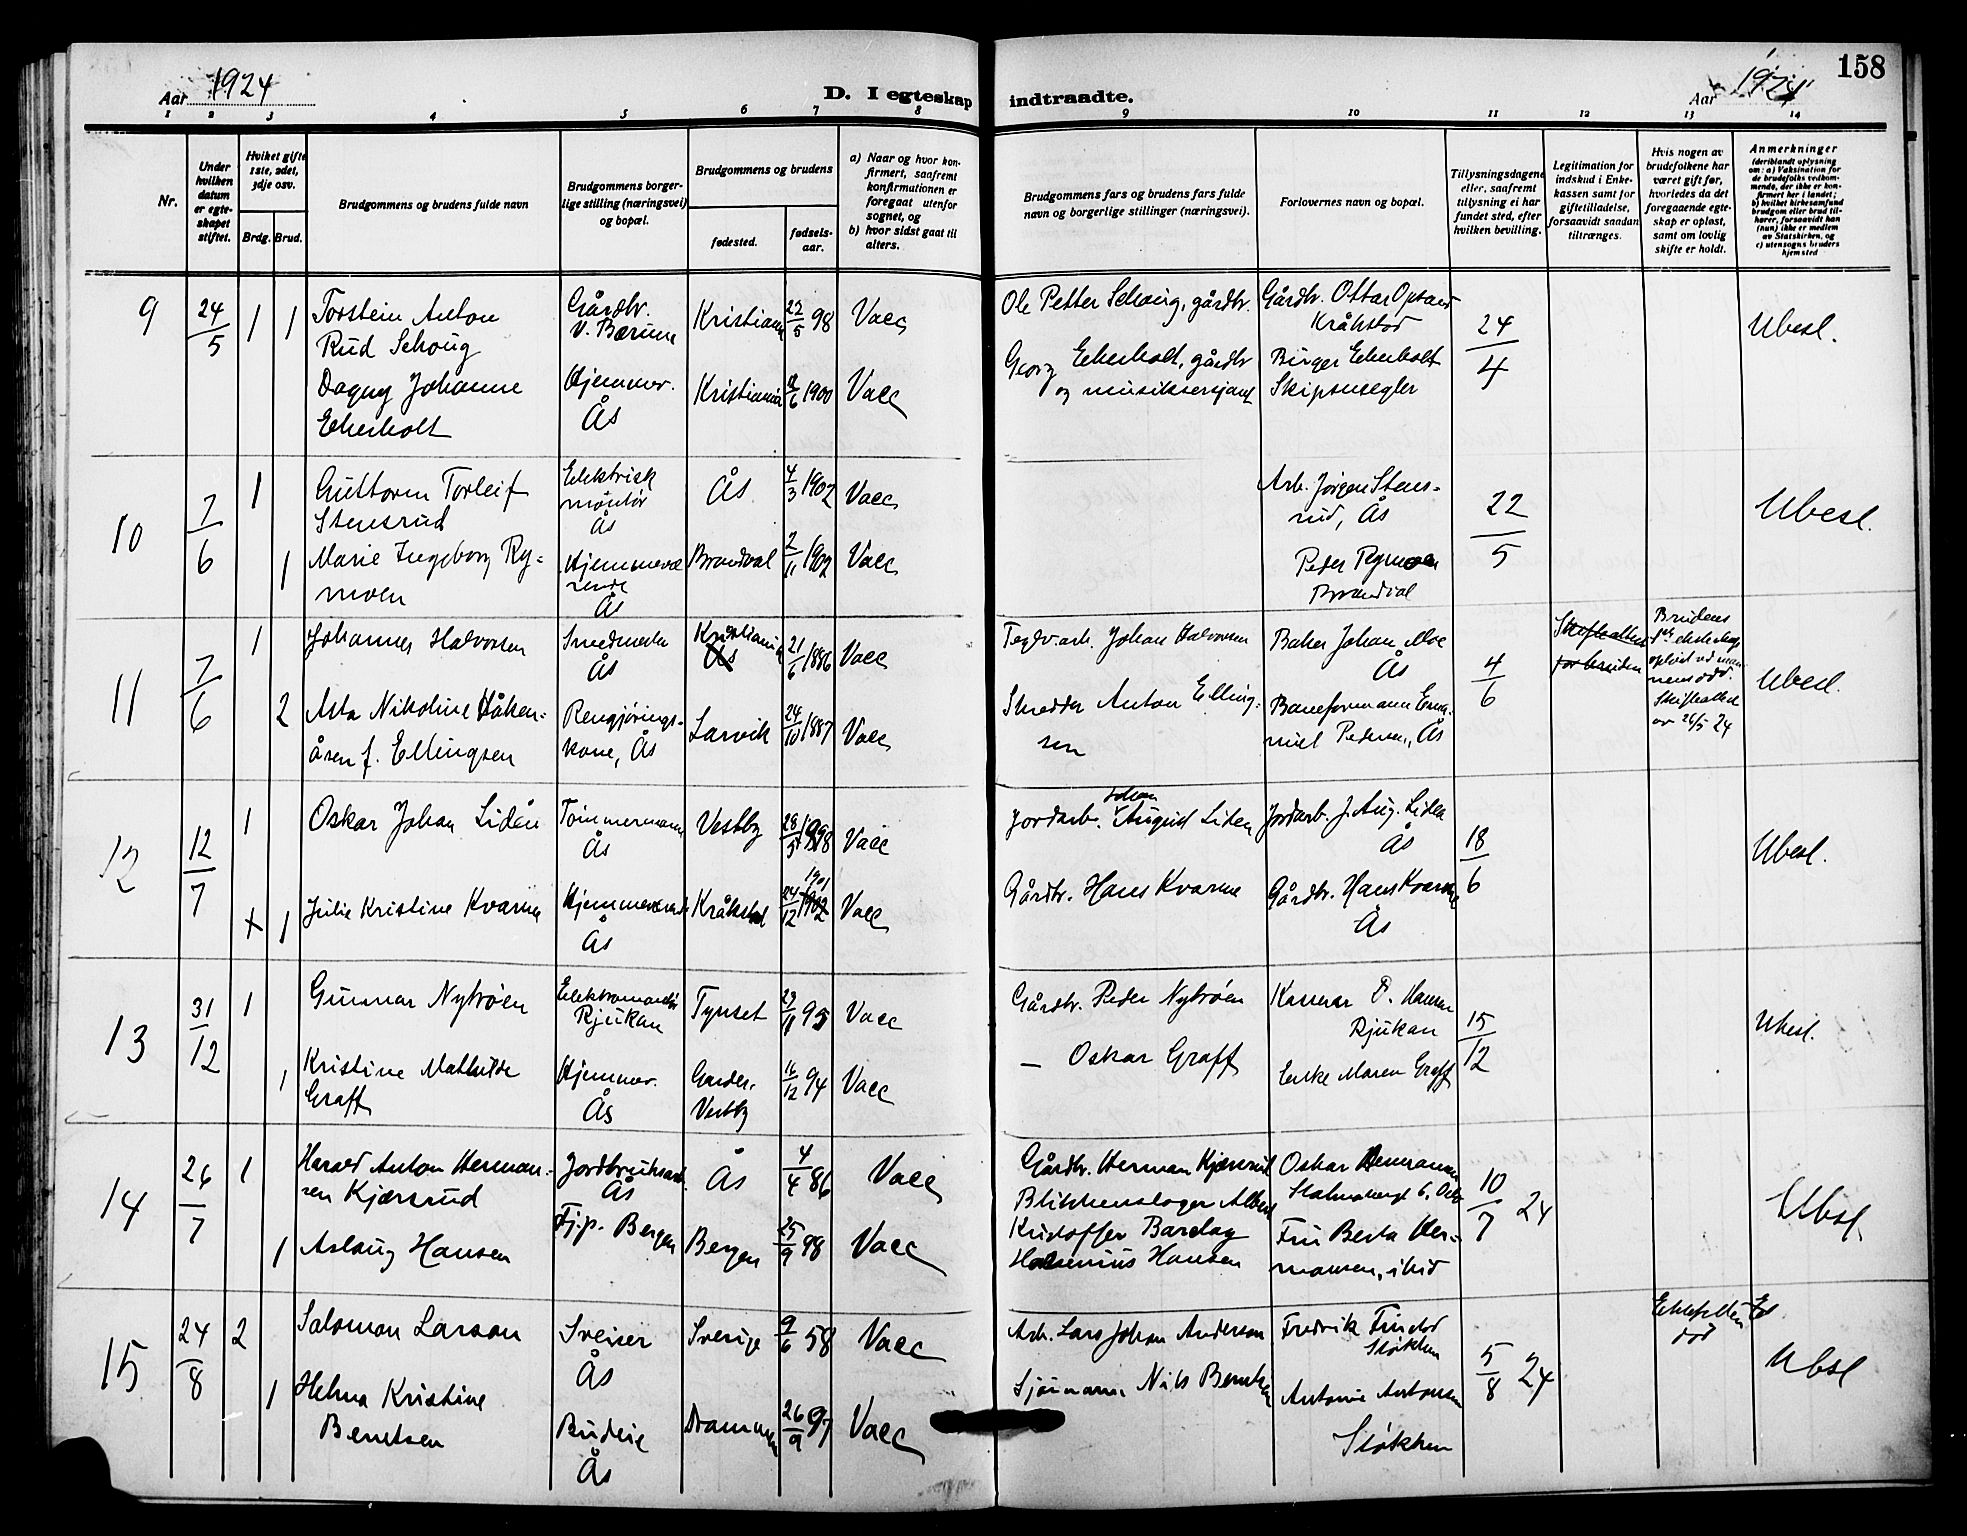 158
Aar 1924
D. I egteskap indtraadte.
Aar 1924
1 2 3 4 5 6 7 8 9 10 11 12 13 14
Nr.
Under hvilken datum er egteskapet stiftet.
Hvilket gifte 1ste, 2det, 3dje osv.
Brdg. Brud.
Brudgommens og brudens fulde navn
Brudgommens borgerlige stilling (næringsvei) og bopæl.
Brudgommens og brudens
fødested.
fødselsaar.
a) Naar og hvor konfirmert, saafremt konfirmationen er foregaat utenfor sognet, og
b) hvor sidst gaat til alters.
Brudgommens fars og brudens fars fulde navn og borgerlige stillinger (næringsvei).
Forlovernes navn og bopæl.
Tillysningsdagene eller, saafremt tillysning ei har fundet sted, efter hvilken bevilling.
Legitimation for indskud i Enkekassen samt for giftetilladelse, forsaavidt saadan tiltrænges.
Hvis nogen av brudefolkene har været gift før, hvorledes da det foregaaende egteskap er opløst, samt om lovlig skifte er holdt.
Anmerkninger
(deriblandt oplysning om: a) Vaksination for de brudefolks vedkommende, der ikke er konfirmert her i landet; b) hvilket kirkesamfund brudgom eller brud tilhører, forsaavidt han (hun) ikke er medlem av Statskirken, og c) utensogns bruders hjemsted
9 24/5 1 1 Torstein Anton
Rud Schoug
Gårdbr.
V. Bærum
Kristiania 22/5 98 Vacc
Ole Petter Schoug, gårdbr.
Gårdbr. Ottar Opsand
Kråkstad
24/4
Ubesl.
Dagny Johanne
Ekerholt
Hjemmev.
Ås
Kristiania 12/6 1900 Vacc
Georg Ekerholt, gårdbr
og musiksersjant
Birger Ekerholt
Skipsnegler
10 7/6 1 Guttorm Torleif
Stensrud
Elektrisk
montør
Ås
Ås 4/3 1902 Vacc
Arb. Jørgen Stens-
rud, Ås
22/5
Ubesl.
1 Marie Ingeborg Ry-
moen
Hjemmevæ
rende
Ås
Brandval 2/11 1902 Vacc
Peder Rymoen
Brandval
11 7/6 1 Johannes Halvorsen
Smedmester
Ås
Kristiania 21/6 1886 Vacc
Teglv.arb. Johan Halvorsen
Baker Johan Moe
Ås
4/6
Skifteattest
for bruden
Brudens
1ste ekteskap
opløst ved man-
nens død.
Skifteattest
av 26/5 24
Ubesl.
2 Asta Nikoline Håken-
åsen f. Ellingsen
Rengjørings-
kone, Ås
Larvik 24/10 1887 Vacc
Skredder Anton Elling-
sen
Baneformann Ema-
nuel Pedersen, Ås
12 12/7 1 Oskar Johan Lidén
Tømmermann
Ås
Vestby 28/5 1898 Vacc
Jordarb. Johan August Liden
Jordarb. J. Aug. Liden
Ås
18/6
Ubesl.
x 1 Julie Kristine Kvarne
Hjemmeværende
Ås
Kråkstad 24/12 1901 1902 Vacc
Gårdbr. Hans Kvarne
Gårdbr. Hans Kvarne
Ås
13 31/12 1 Gunnar Nytrøen
Elektromontør
Rjukan
Tynset 95 Vacc
Gårdbr. Peder Nytrøen
O. Hansen
Rjukan
15/12
Ubesl.
1 Kristine Mathilde
Graff
Hjemmev.
Ås
Garder,
Vestby
94 Vacc
— Oskar Graff
Enke Maren Graff
14 26/7 1 Harald Anton Herman-
sen Kjærsrud
Jordbruksarb.
Ås
Ås 4/4 86 Vacc
Gårdbr. Herman Kjærsrud
Oskar Hermansen
10/7 24
Ubsl
1 Aslaug Hansen
Tj.p. Bergen
Bergen 25/9 98 Vacc
Blikkenslager Albert
Kristoffer Barclay
Hansen
Fru Berta Her-
mansen, ibid
15 24/8 2 Salomon Larsson
Sveiser
Ås
Sverige 9/6 58 Vacc
Arb. Lars Johan Anderson
Fredrik
Støkken
5/8 24
død
Ubsl
1 Helma Kristine
Berntsen
Budeie
Ås
Drammen 26/9 97 Vacc
Sjømann Nils Berntsen
Antonie Antonsen
Støkken